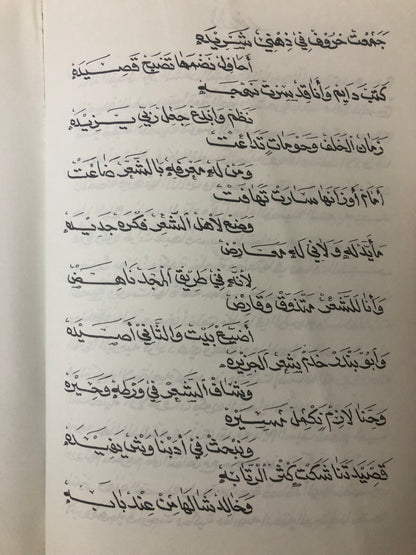 جمعت حروف في ذهني شريده
أحاول نضمها تصبح قصيده
كتب دايم وأنا قد سرت نهجه
نظم وابدع جعل ربي يزيده
زمان الخلف وحومات تداعت
ومن له معرفه بالشعر ضاعت
أمام أوزانها سارت تهافت
وصنع لأهل الشعر فكره جديده
ما يذله ولا في له معارض
لأنه في طريق المجد ناهض
وأنا للشعر متذوق وقارض
أصيح بيت والثاني أصيده
وأبو بندر خدم شعر الجزيره
وشاف الشعر في ورطه وحيره
وحنا لازم نكمل مسيره
ونبحث في أدبنا وش يفيده
قصيدتنا شكت كثر الرتابه
وخالد شالها من عند بابه